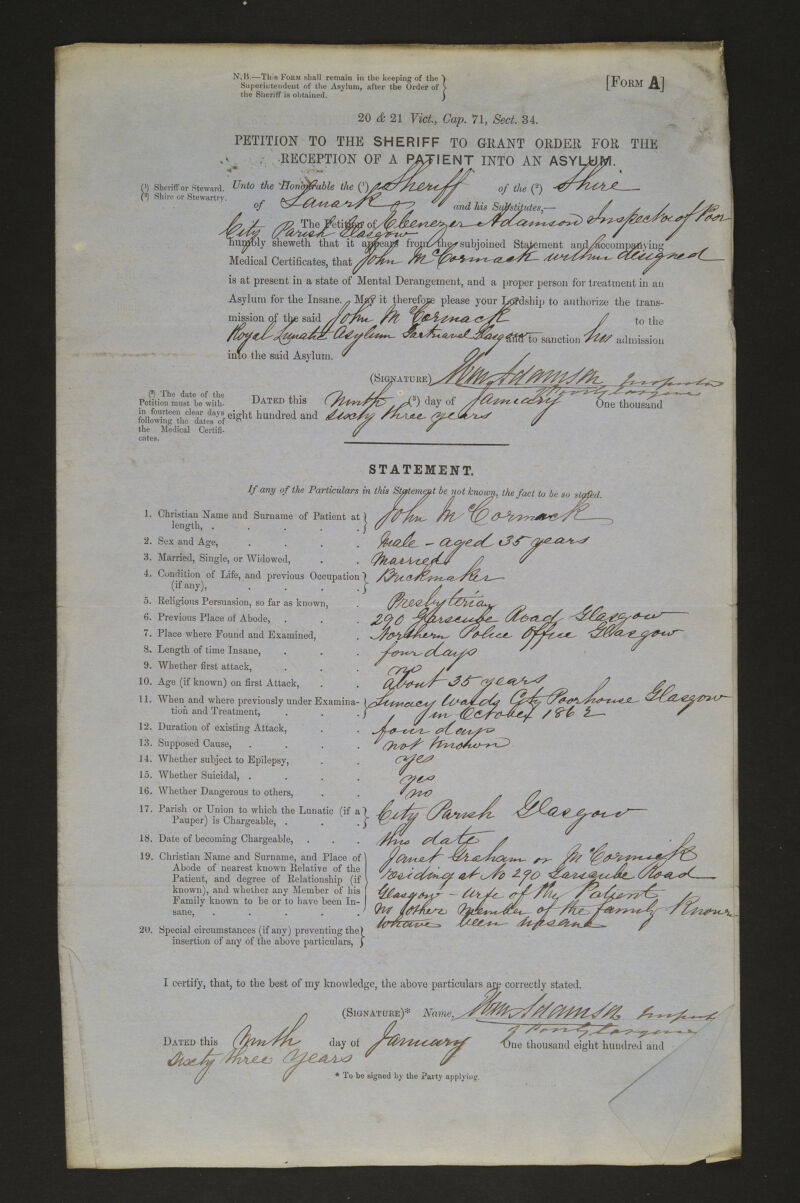 N.B.—This Form shall remain in the keeping of the
Superintendent of the Asylum, after the Order of
the Sheriff is obtained.
[Form A]
20 & 21 Vict., Cap. 71, Sect. 34.
PETITION TO THE SHERIFF TO GRANT ORDER FOR THE
RECEPTION OF A PATIENT INTO AN ASYLUM.
(1) Sheriff or Steward.
(2) Shire or Stewartry.
Unto the Honourable the (1) Sheriff of the (2) Shire
of Lanark and his Substitutes,—
The Petition of Ebenezer Adamson Inspector of Poor
City Parish Glasgow
humbly sheweth that it appears from the subjoined Statement and accompanying
Medical Certificates, that John McCormack within designed
is at present in a state of Mental Derangement, and a proper person for treatment in an
Asylum for the Insane. May it therefore please your Lordship to authorize the trans-
mission of the said John McCormack to the
Royal Lunatic Asylum Gartnavel Glasgow and to sanction his admission
into the said Asylum.
(Signature) Adamson Inspector
of Poor Glasgow
(3) The date of the
Petition must be with-
in fourteen clear days
following the dates of
the Medical Certifi-
cates.
Dated this Ninth (3) day of January One thousand
eight hundred and Sixty three years
STATEMENT.
If any of the Particulars in this Statement be not known, the fact to be so stated.
1. Christian Name and Surname of Patient at
length, . . . . . John McCormack
2. Sex and Age, . . . . Male - aged 35 years
3. Married, Single, or Widowed, . . Married
4. Condition of Life, and previous Occupation
(if any), . . . . . Brickmaker
5. Religious Persuasion, so far as known, . Presbyterian
6. Previous Place of Abode, . . . 290 Garscube Road Glasgow
7. Place where Found and Examined, . . Northern Police Office Glasgow
8. Length of time Insane, . . . four days
9. Whether first attack, . . . no
10. Age (if known) on first Attack, . . About 35 years
11. When and where previously under Examina-
tion and Treatment, . . . Lunacy Wards City Poorhouse Glasgow
in October 1862
12. Duration of existing Attack, . . four days
13. Supposed Cause, . . . . not known
14. Whether subject to Epilepsy, . . yes
15. Whether Suicidal, . . . . yes
16. Whether Dangerous to others, . . no
17. Parish or Union to which the Lunatic (if a
Pauper) is Chargeable, . . . City Parish Glasgow
18. Date of becoming Chargeable, . . . this date
19. Christian Name and Surname, and Place of
Abode of nearest known Relative of the
Patient, and degree of Relationship (if
known), and whether any Member of his
Family known to be or to have been In-
sane, . . . . . .
Janet Graham or McCormack
residing at No 290 Garscube Road
Glasgow - Wife of the Patient
no other member of the family known
to have been insane
20. Special circumstances (if any) preventing the
insertion of any of the above particulars,
I certify, that, to the best of my knowledge, the above particulars are correctly stated.
(Signature)* Name, Adamson Inspector
of Poor Glasgow
Dated this Ninth day of January One thousand eight hundred and
Sixty three years
* To be signed by the Party applying.